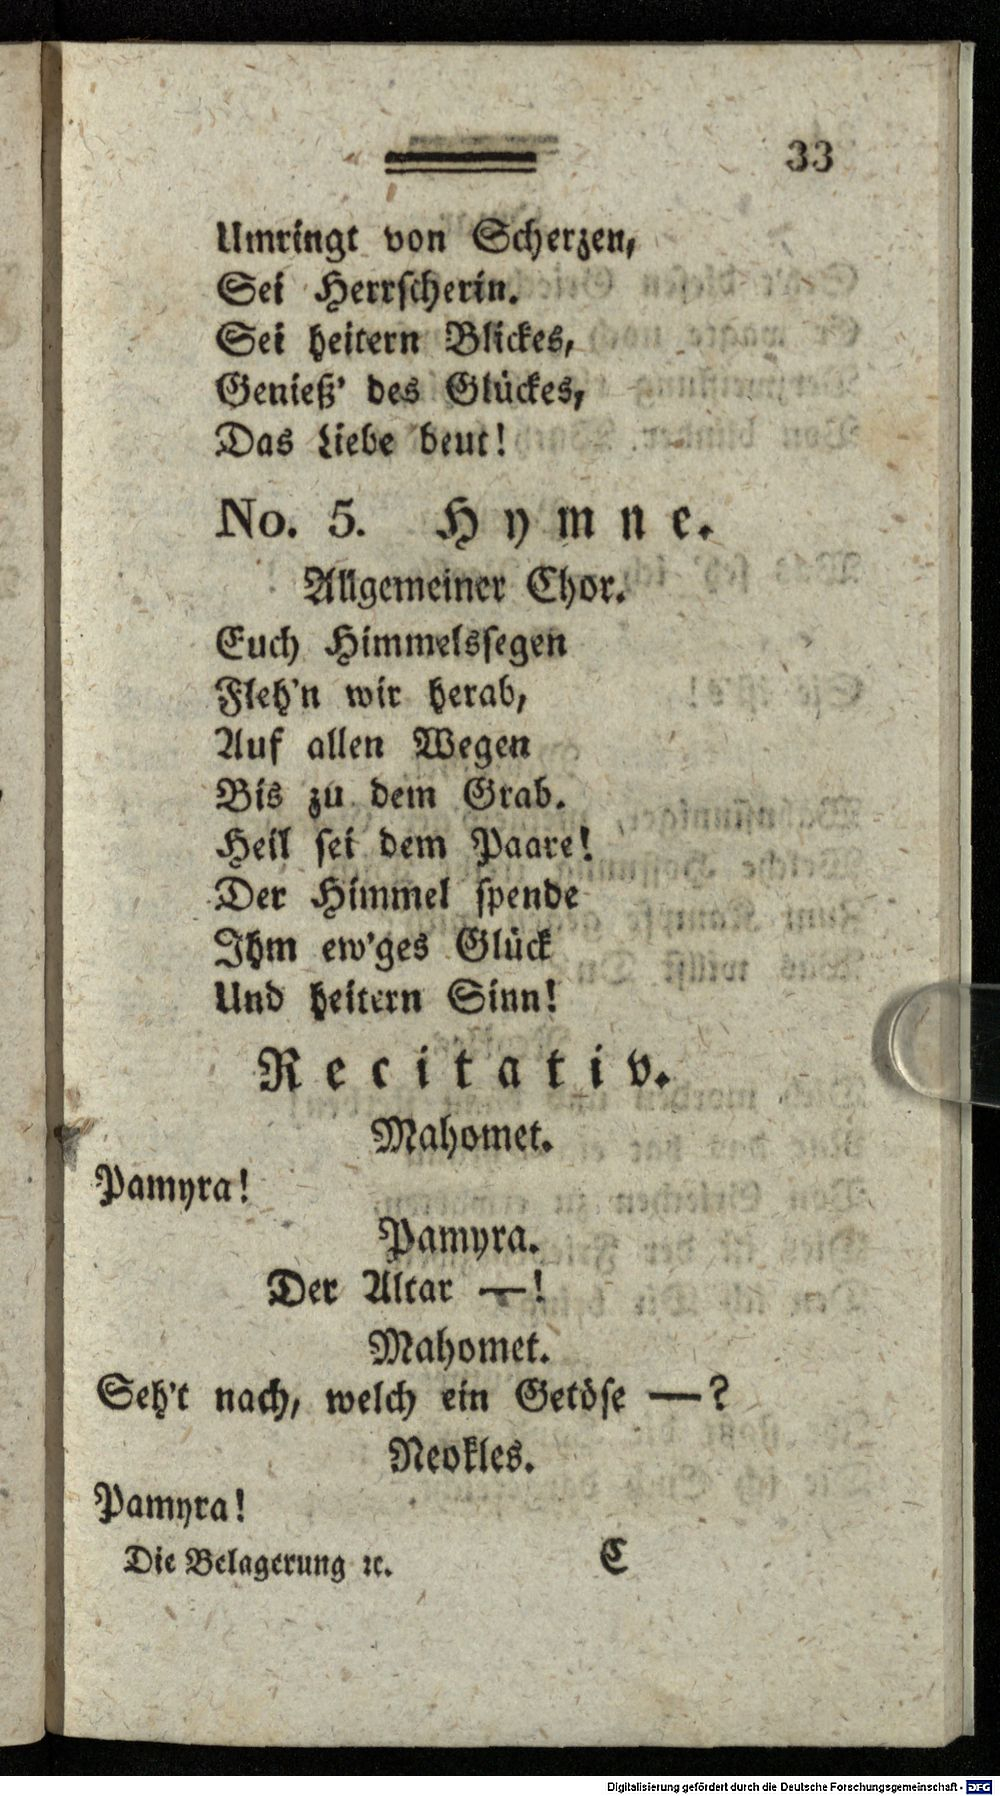 33
Umringt von Scherzen,
Sei Herrscherin.
Sei heitern Blickes,
Genieß' des Glückes,
Das Liebe beut!
No. 5. Hymne.
Allgemeiner Chor.
Euch Himmelssegen
Fleh'n wir herab,
Auf allen Wegen
Bis zu dem Grab.
Heil sei dem Paare!
Der Himmel spende
Ihm ew'ges Glück
Und heitern Sinn!
Recitativ.
Mahomet.
Pamyra!
Pamyra.
Der Altar —!
Mahomet.
Seh't nach, welch ein Getöse —?
Neokles.
Pamyra!
Die Belagerung ꝛc. C
Digitalisierung gefördert durch die Deutsche Forschungsgemeinschaft - DFG